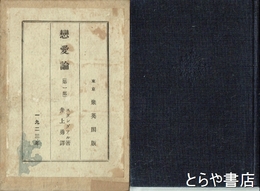 東京 聚英閣版
戀愛論
第一部
スタンダール著
井上勇譯
一九二二年
とらや書店